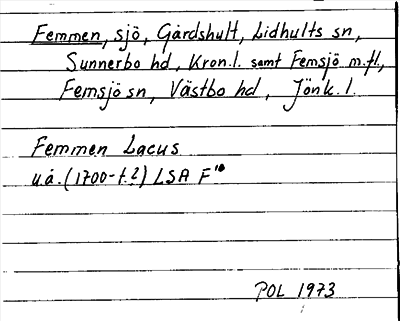 Femmen, sjö, Gårdshult, Lidhults sn,
Sunnerbo hd, Kron.l. samt Femsjö m.fl,
Femsjö sn, Västbo hd, Jönk.l.
Femmen Lacus
u.å. (1700-t.?) LSA F 10
POL 1973